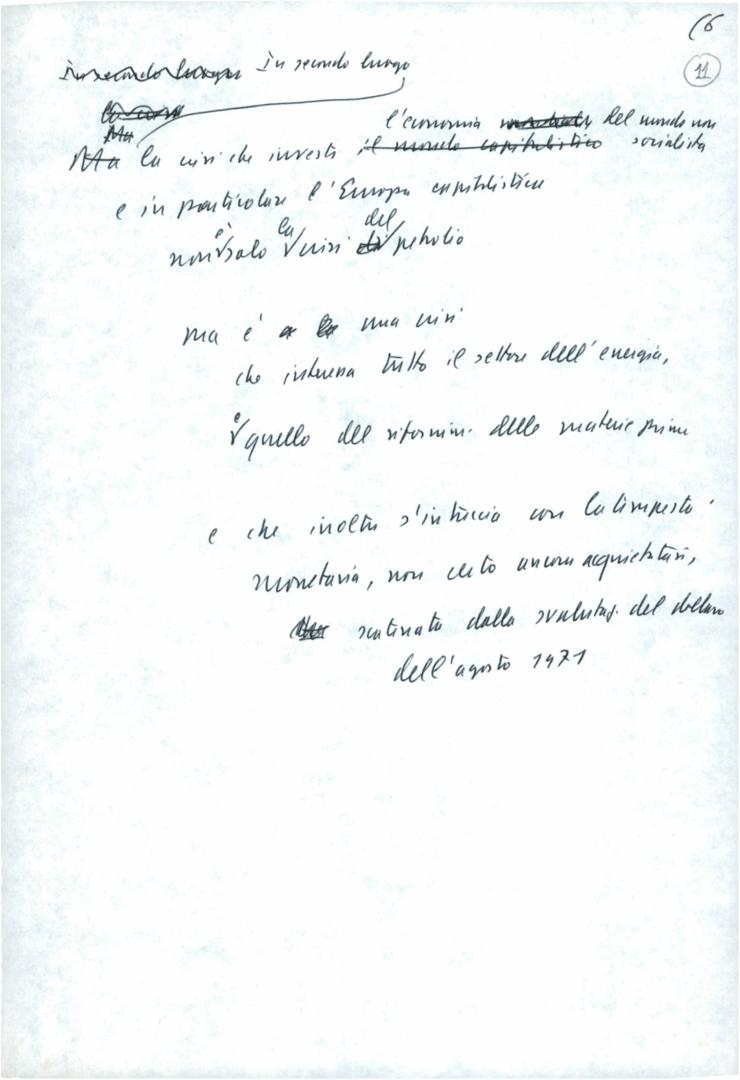 16
11
In secondo luogo In secondo luogo
la crisi
Ma
l'economia mondiale del mondo non
Ma la crisi che investe il mondo capitalistico socialista
e in particolare l'Europa capitalistica
non è solo la crisi di del petrolio
ma è la una crisi
che interessa tutto il settore dell'energia,
e quello del rifornim. delle materie prime
e che inoltre s'intreccia con la tempesta
monetaria, non certo ancora acquietatasi,
scatenata dalla svalutaz. del dollaro
dell'agosto 1971